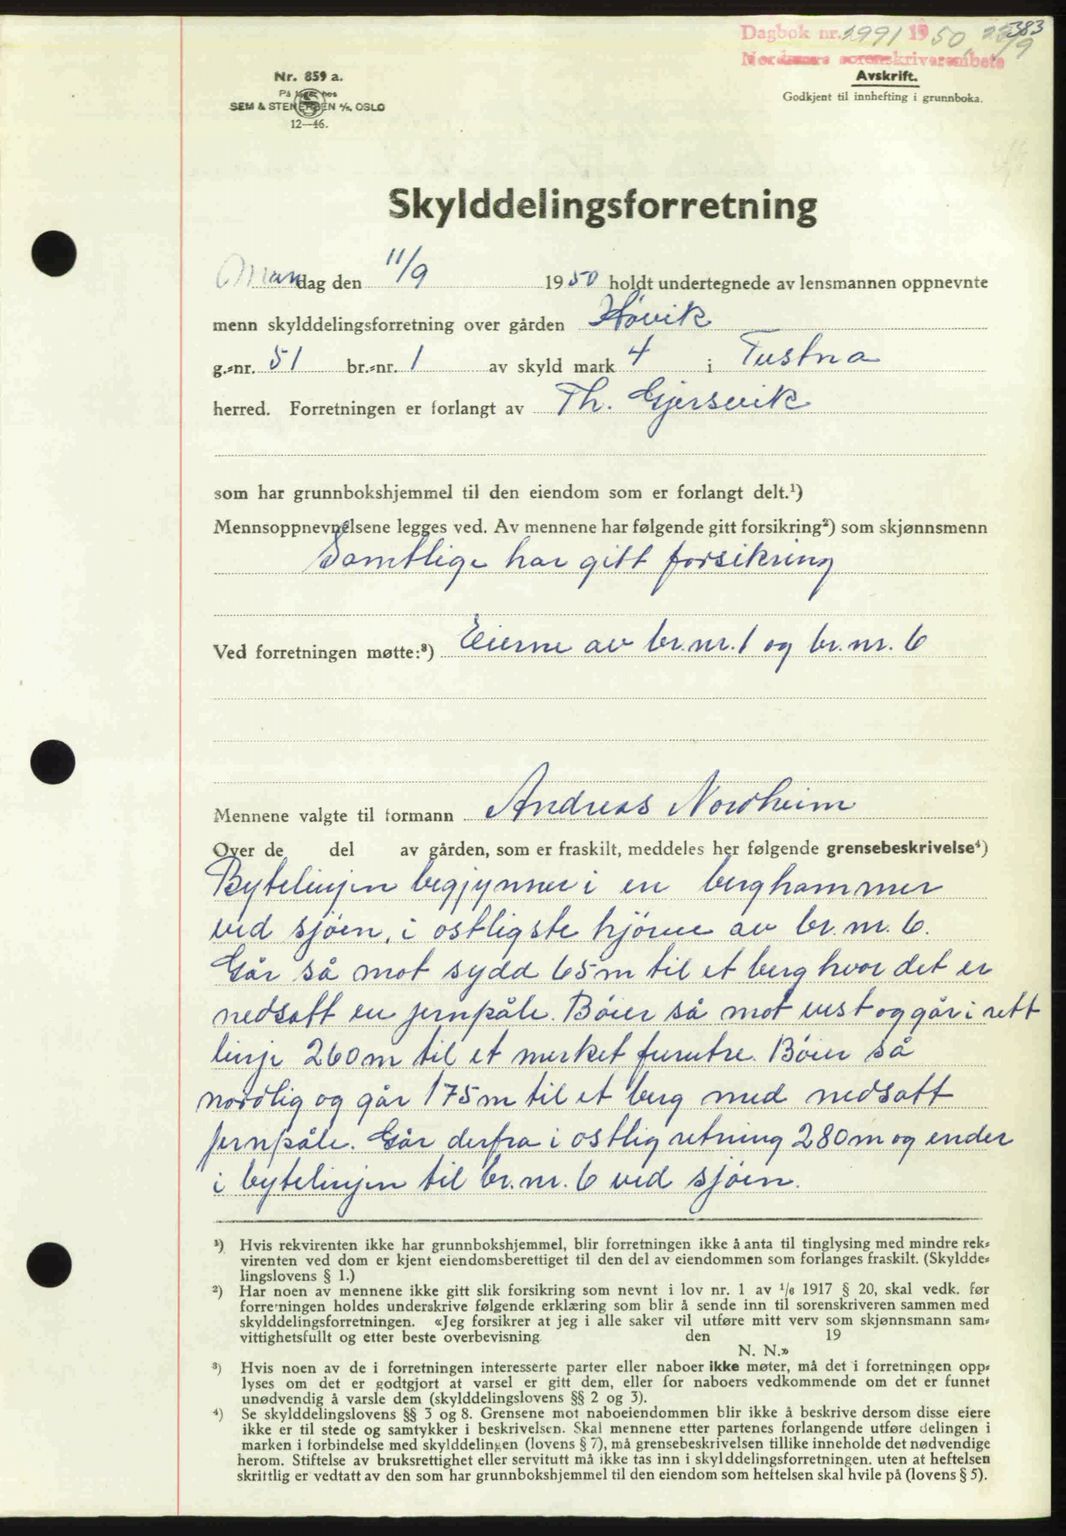 383
Dagbok nr. 1991 1950, 22/9
Nordmøre sorenskriverembete
Nr. 859 a.
På lager hos
SEM & STENERSEN A/S, OSLO
12—46.
Avskrift.
Godkjent til innhefting i grunnboka.
Skylddelingsforretning
Mandag den 11/9 1950 holdt undertegnede av lensmannen oppnevnte
menn skylddelingsforretning over gården Høvik
g.-nr. 51 br.-nr. 1 av skyld mark 4 i Tustna
herred. Forretningen er forlangt av Th. Gjersvik
som har grunnbokshjemmel til den eiendom som er forlangt delt.¹)
Mennsoppnevnelsene legges ved. Av mennene har følgende gitt forsikring²) som skjønnsmenn
Samtlige har gitt forsikring
Ved forretningen møtte:³) Eierne av br.nr. 1 og br.nr. 6
Mennene valgte til formann Andreas Nordheim
Over de del av gården, som er fraskilt, meddeles her følgende grensebeskrivelse⁴)
Bytelinjen begjynner i en berghammer
ved sjøen, i østligste hjørne av br.nr. 6.
Går så mot sydd 65m til et berg hvor det er
nedsatt en jernpåle. Bøier så mot vest og går i rett
linje 260m til et merket furutre. Bøier så
nordlig og går 175m til et berg med nedsatt
jernpåle. Går derfra i østlig retning 280m og ender
i bytelinjen til br.nr. 6 ved sjøen.
¹) Hvis rekvirenten ikke har grunnbokshjemmel, blir forretningen ikke å anta til tinglysing med mindre rek-
virenten ved dom er kjent eiendomsberettiget til den del av eiendommen som forlanges fraskilt. (Skyldde-
lingslovens § 1.)
²) Har noen av mennene ikke gitt slik forsikring som nevnt i lov nr. 1 av 1/6 1917 § 20, skal vedk. før
forretningen holdes underskrive følgende erklæring som blir å sende inn til sorenskriveren sammen med
skylddelingsforretningen. «Jeg forsikrer at jeg i alle saker vil utføre mitt verv som skjønnsmann sam-
vittighetsfullt og etter beste overbevisning den 19
N. N.»
³) Hvis noen av de i forretningen interesserte parter eller naboer ikke møter, må det i forretningen opp-
lyses om det er godtgjort at varsel er gitt dem, eller for naboers vedkommende om det er funnet
unødvendig å varsle dem (skylddelingslovens §§ 2 og 3).
⁴) Se skylddelingslovens §§ 3 og 8. Grensene mot naboeiendommen blir ikke å beskrive dersom disse eiere
ikke er til stede og samtykker i beskrivelsen. Skal mennene etter partenes forlangende utføre delingen i
marken i forbindelse med skylddelingen (lovens § 7), må grensebeskrivelsen tillike inneholde det nødvendige
herom. Stiftelse av bruksrettighet eller servitutt må ikke tas inn i skylddelingsforretningen, uten at heftelsen
skriftlig er vedtatt av den som har grunnbokshjemmel til den eiendom som heftelsen skal hvile på (lovens § 5).